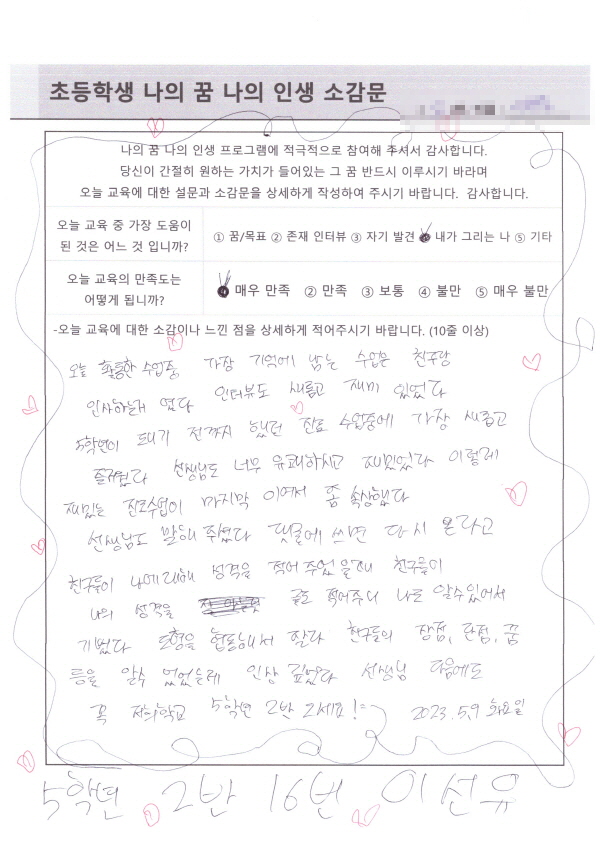 초등학생 나의 꿈 나의 인생 소감문
나의 꿈 나의 인생 프로그램에 적극적으로 참여해 주셔서 감사합니다.
당신이 간절히 원하는 가치가 들어있는 그 꿈 반드시 이루시기 바라며
오늘 교육에 대한 설문과 소감문을 상세하게 작성하여 주시기 바랍니다. 감사합니다.
오늘 교육 중 가장 도움이
된 것은 어느 것 입니까?
① 꿈/목표 ② 존재 인터뷰 ③ 자기 발견 ④ 내가 그리는 나 ⑤ 기타
오늘 교육의 만족도는
어떻게 됩니까?
① 매우 만족 ② 만족 ③ 보통 ④ 불만 ⑤ 매우 불만
-오늘 교육에 대한 소감이나 느낀 점을 상세하게 적어주시기 바랍니다. (10줄 이상)
오늘 활동한 수업중 가장 기억에 남는 수업은 친구랑
인사하는게 였다 인터뷰도 새롭고 재미 있었다
5학년이 되기 전까지 했던 진로 수업중에 가장 새롭고
즐거웠다 선생님도 너무 유쾌하시고 재밌었다 이렇게
재밌는 진로수업이 마지막 이어서 좀 속상했다
선생님도 말해 주셨다 댓글에 쓰면 다시 온라고
친구들이 나에 대해 성격을 적어 주었을때 친구들이
나의 성격을 골고 적어주니 나도 알수있어서
기뻤다 모형을 협동해서 잘다 친구들의 장점, 단점, 꿈
등을 알수 있었는데 인상 깊었다 선생님 다음에도
꼭 저희학교 5학년 2반 오세요! 2023.5.9 화요일
5학년 2반 16번 이선유